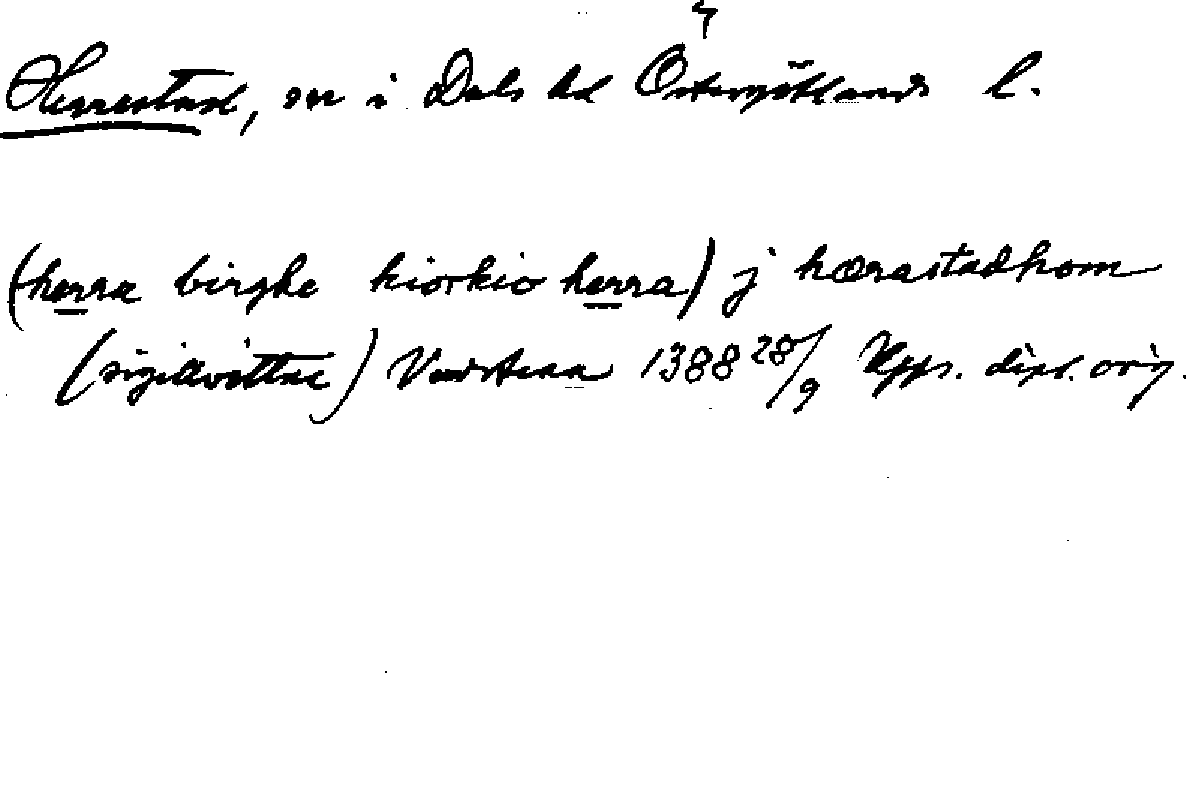 Herrestad, sn i Dals hd Östergötlands l.
(herra birghe kiorkio herra) j hærastadhom
(sigillvittne) Vadstena 1388 28/9 Upps. dipl. orig.